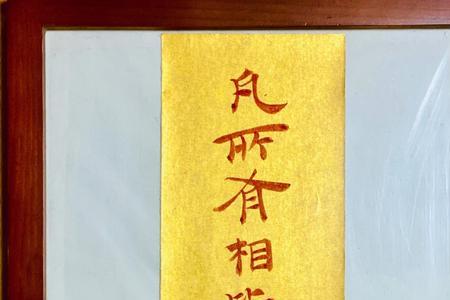 凡所有相